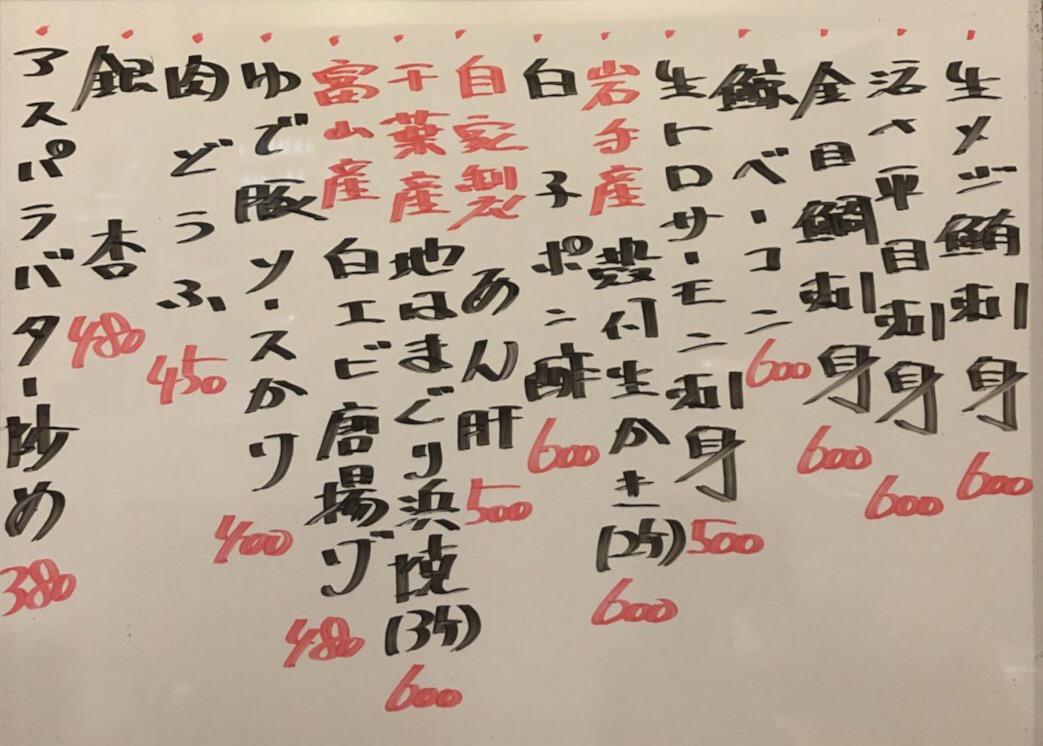 生メジ鮪刺身 600
活〆平目刺身 600
金目鯛刺身 600
鯨ベーコン 600
生トロサーモン刺身 500
岩手産 殻付生かき(2ケ) 600
白子ポン酢 600
自家製 あん肝 500
千葉産 地はまぐり浜焼(3ケ) 600
富山産 白エビ唐揚げ 480
ゆで豚ソースかつ 400
肉どうふ 450
銀杏 480
アスパラバター炒め 380